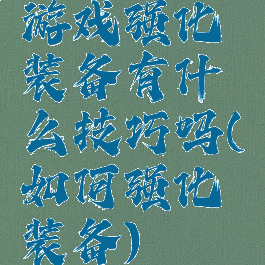 游戏强化
装备有什
么技巧吗(
如何强化
装备)